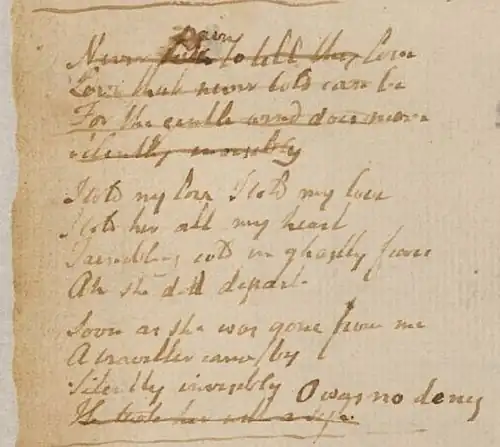 pain
Never seek to tell thy love
Love that never told can be
For the gentle wind does move
silently invisibly
I told my love I told my love
I told her all my heart
Trembling cold in ghastly fears
Ah she doth depart
Soon as she was gone from me
A traveller came by
Silently invisibly O was no deny
He took her with a sigh